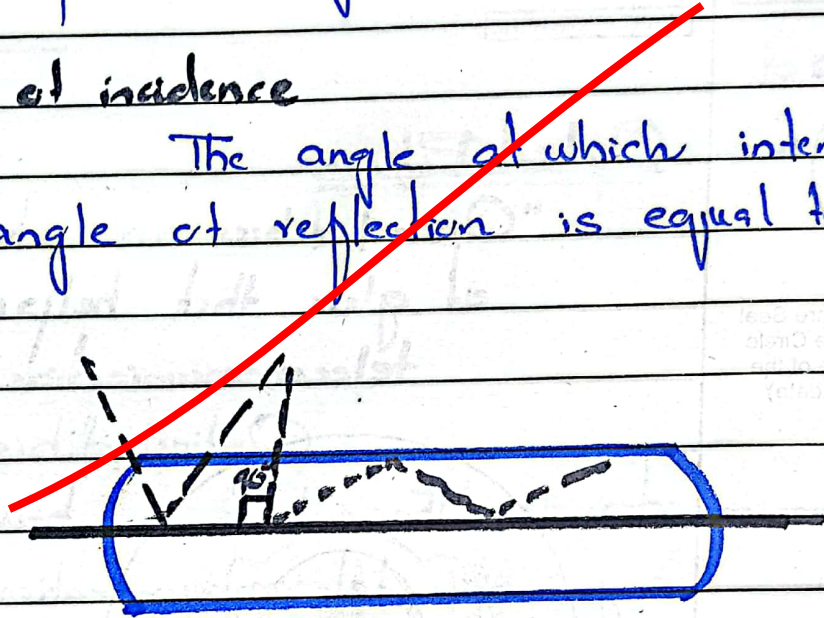 of incidence
The angle at which inter
angle of reflection is equal t
90°